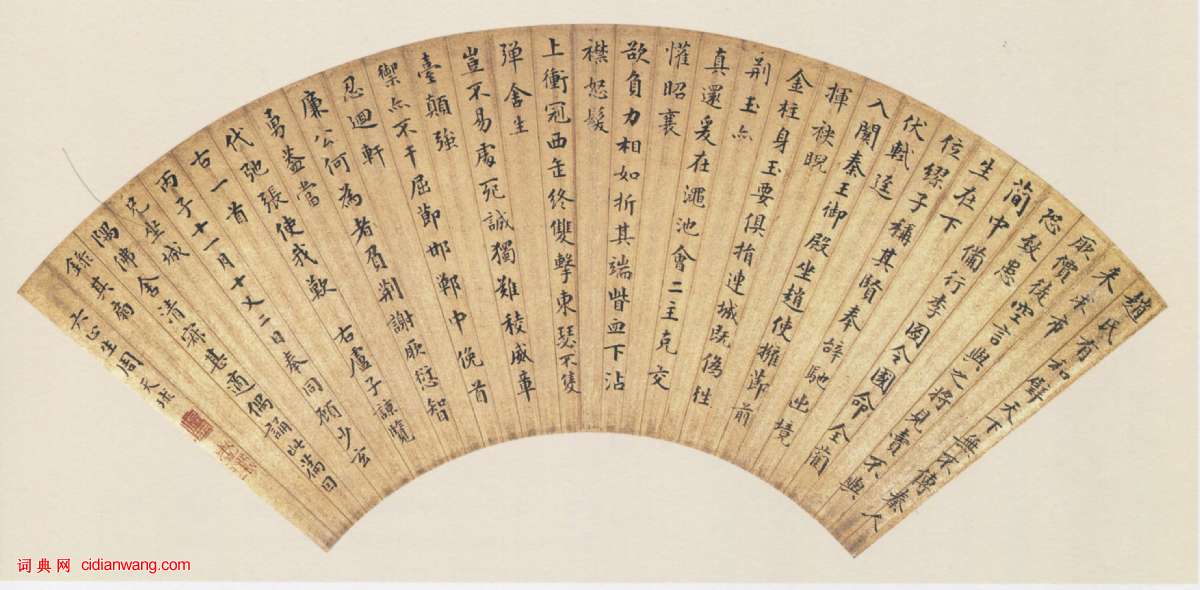 趙氏有和璧天下無不傳秦人
来求市
厥價徒空言與之將見責不與
恐致患
簡中備行李圖令國命全藺
生在下
位繆子稱其賢奉辭馳出境
伏軾逕
入關秦王御殿坐趙使擁節前
揮袂睨
金柱身玉要俱捐連城既偽往
荊玉亦
真還爰在澠池會二主克交
懽昭襄
欲負力相如折其端眥血下沾
襟怒髮
上衝冠西缶終雙擊東瑟不隻
彈舍生
豈不易處死誠獨難稜威章
臺顛強
禦亦不干屈節邯鄲中俛首
忍迴軒
廉公何為者負荊謝厥愆智
勇蓋當
代弛張使我歎 右盧子諒覽
古一首
丙子十一月十又二日奉同顧少玄
兄坐城
隅佛舍清寐甚適偶誦此篇因
錄其扇
六止生周天球
词典网 cidianwang.com